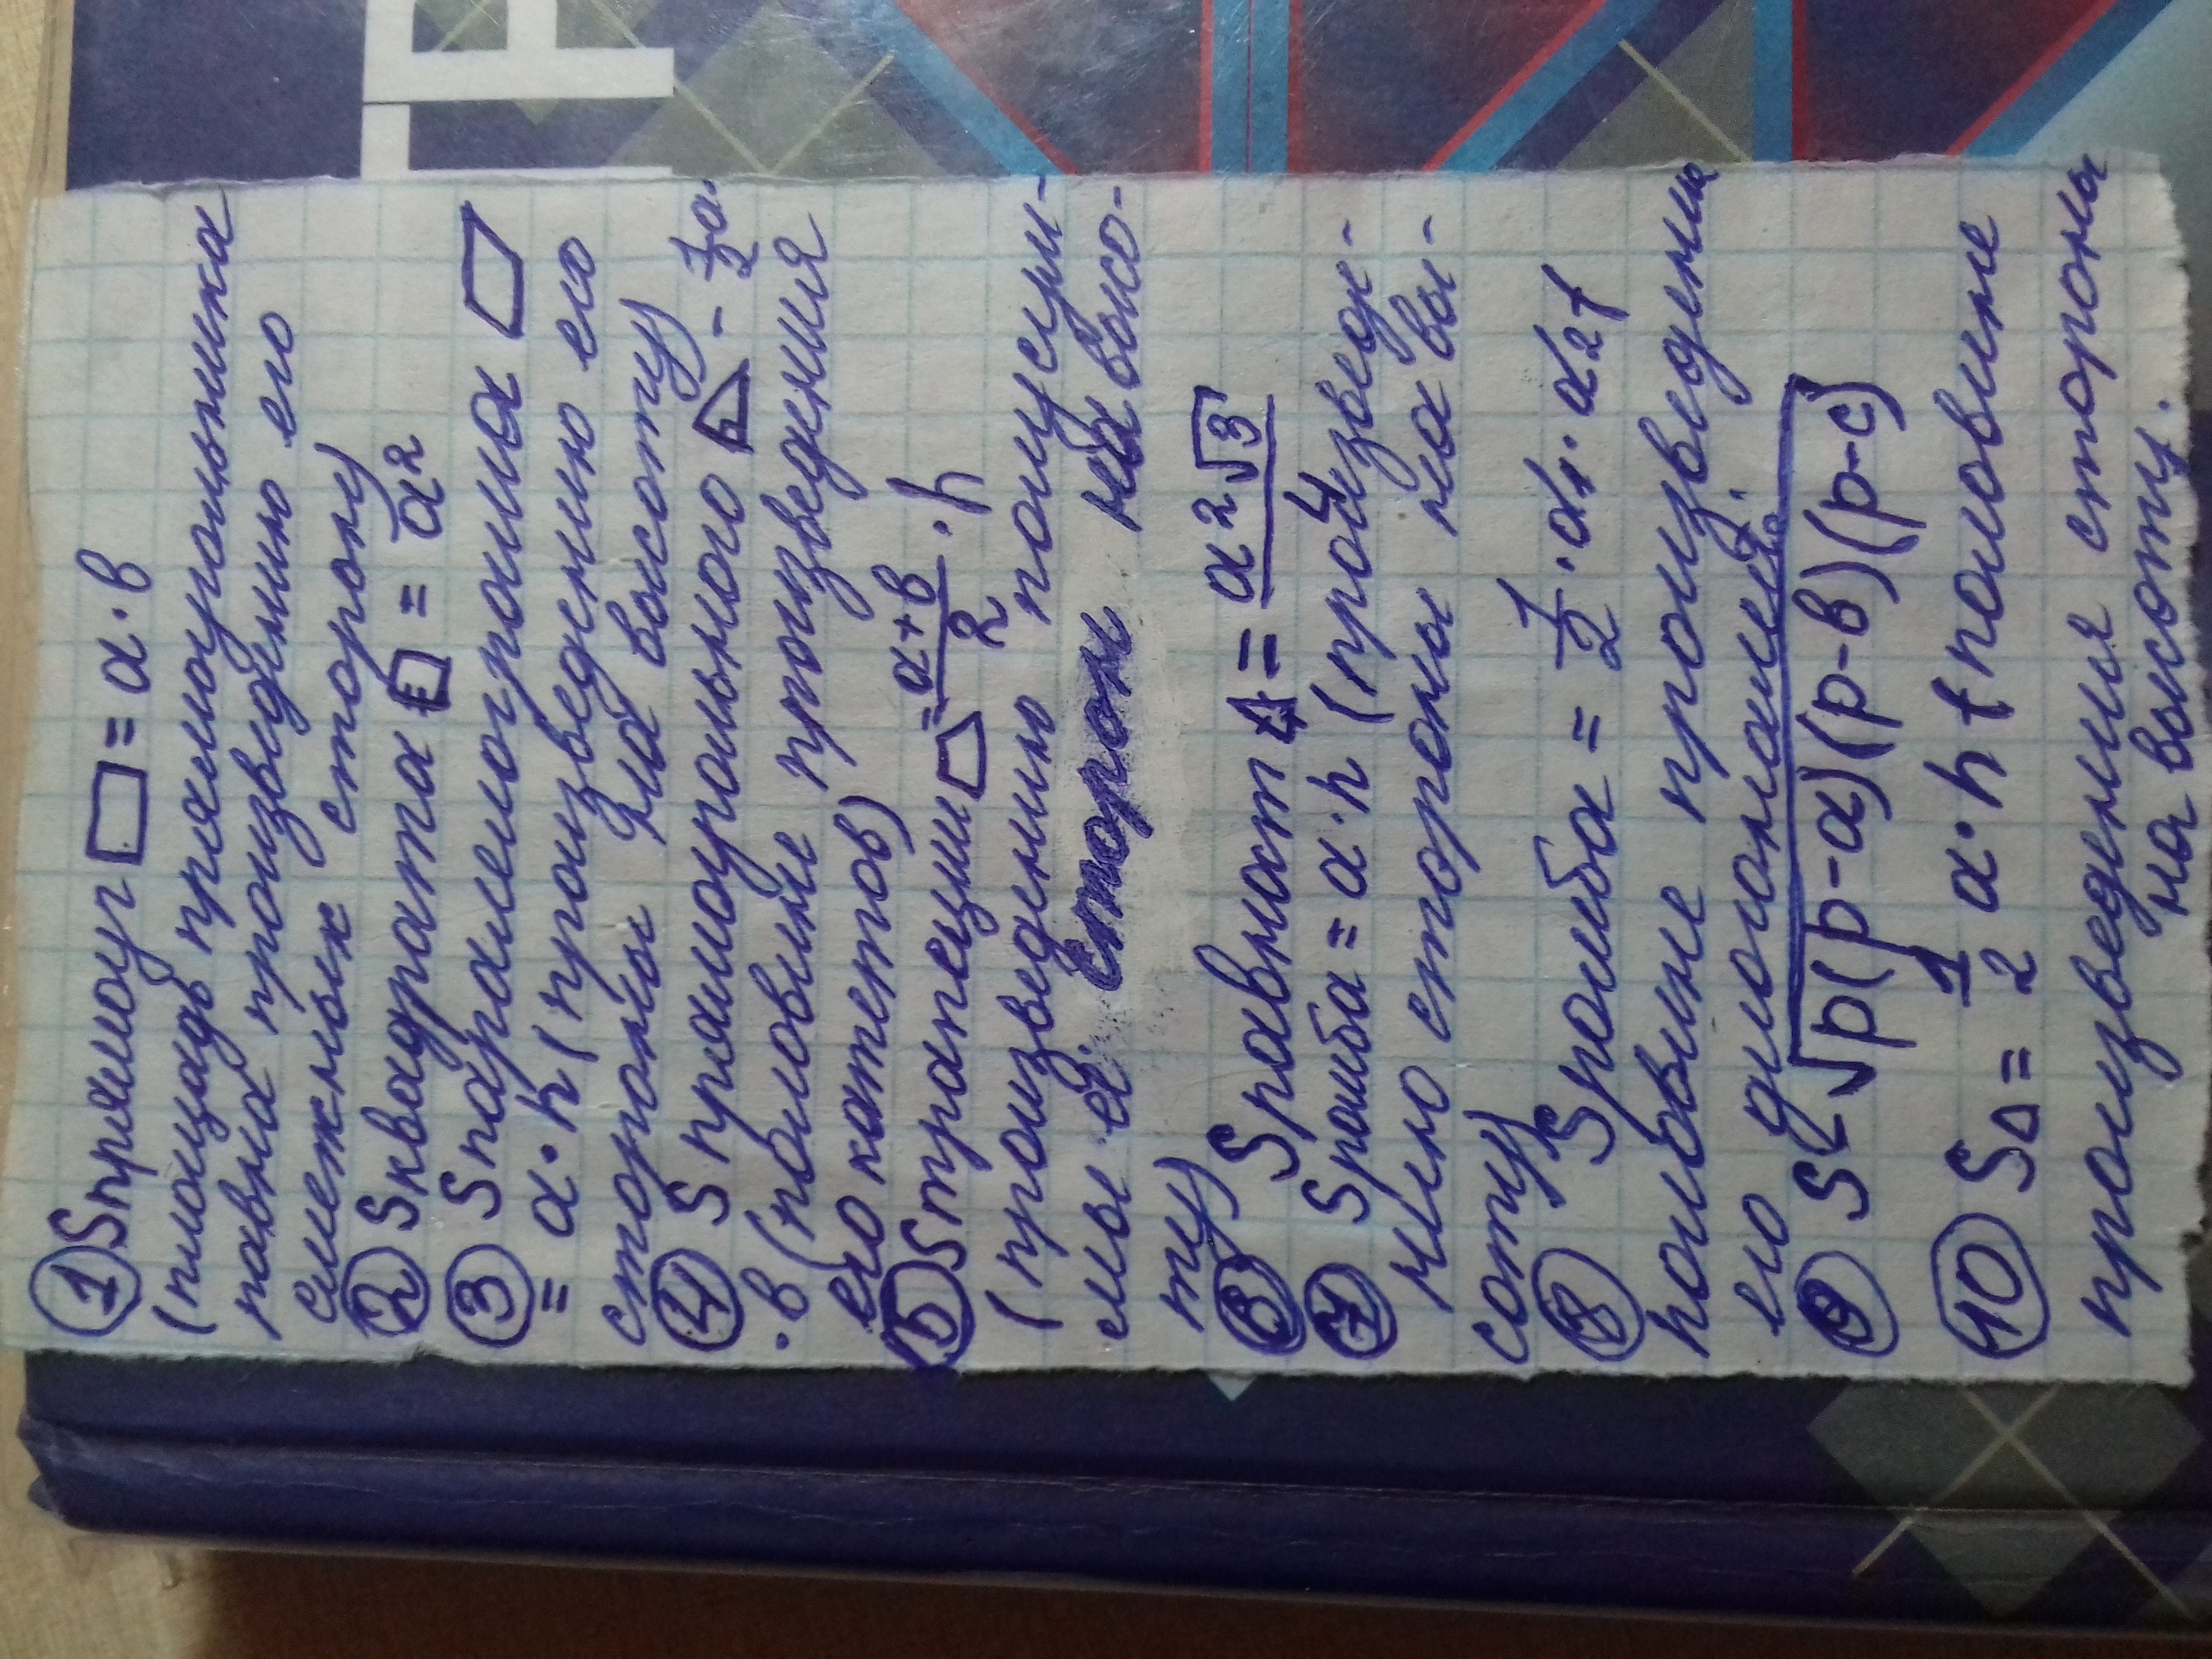 ① Sпрямоуг▭ = a·b
(площадь прямоугольника
равна произведению его
смежных сторон)
② Sквадрата□ = a²
③ Sпараллелограмма ▱
= a·h (произведению его
стороны на высоту)
④ S прямоугольного ◺ - ½a·
·b (половине произведения
его катетов)
⑤ Sтрапеции = a+b/2 · h
(произведению полусум-
мы её сторон на высо-
ту)
⑥ Sравност △ = a²√3/4
⑦ Sромба = a·h (произведе-
нию стороны на вы-
соту)
⑧ Sромба = ½·d₁·d₂ (
половине произведения
его диагоналей.
⑨ S = √p(p-a)(p-b)(p-c)
⑩ S△ = ½ a·h (половине
произведения стороны
на высоту.
Р